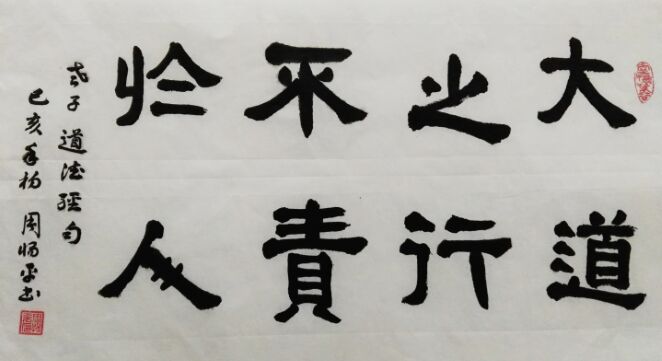 大道
之行
不責
於人
老子 道德經句
己亥 周 书